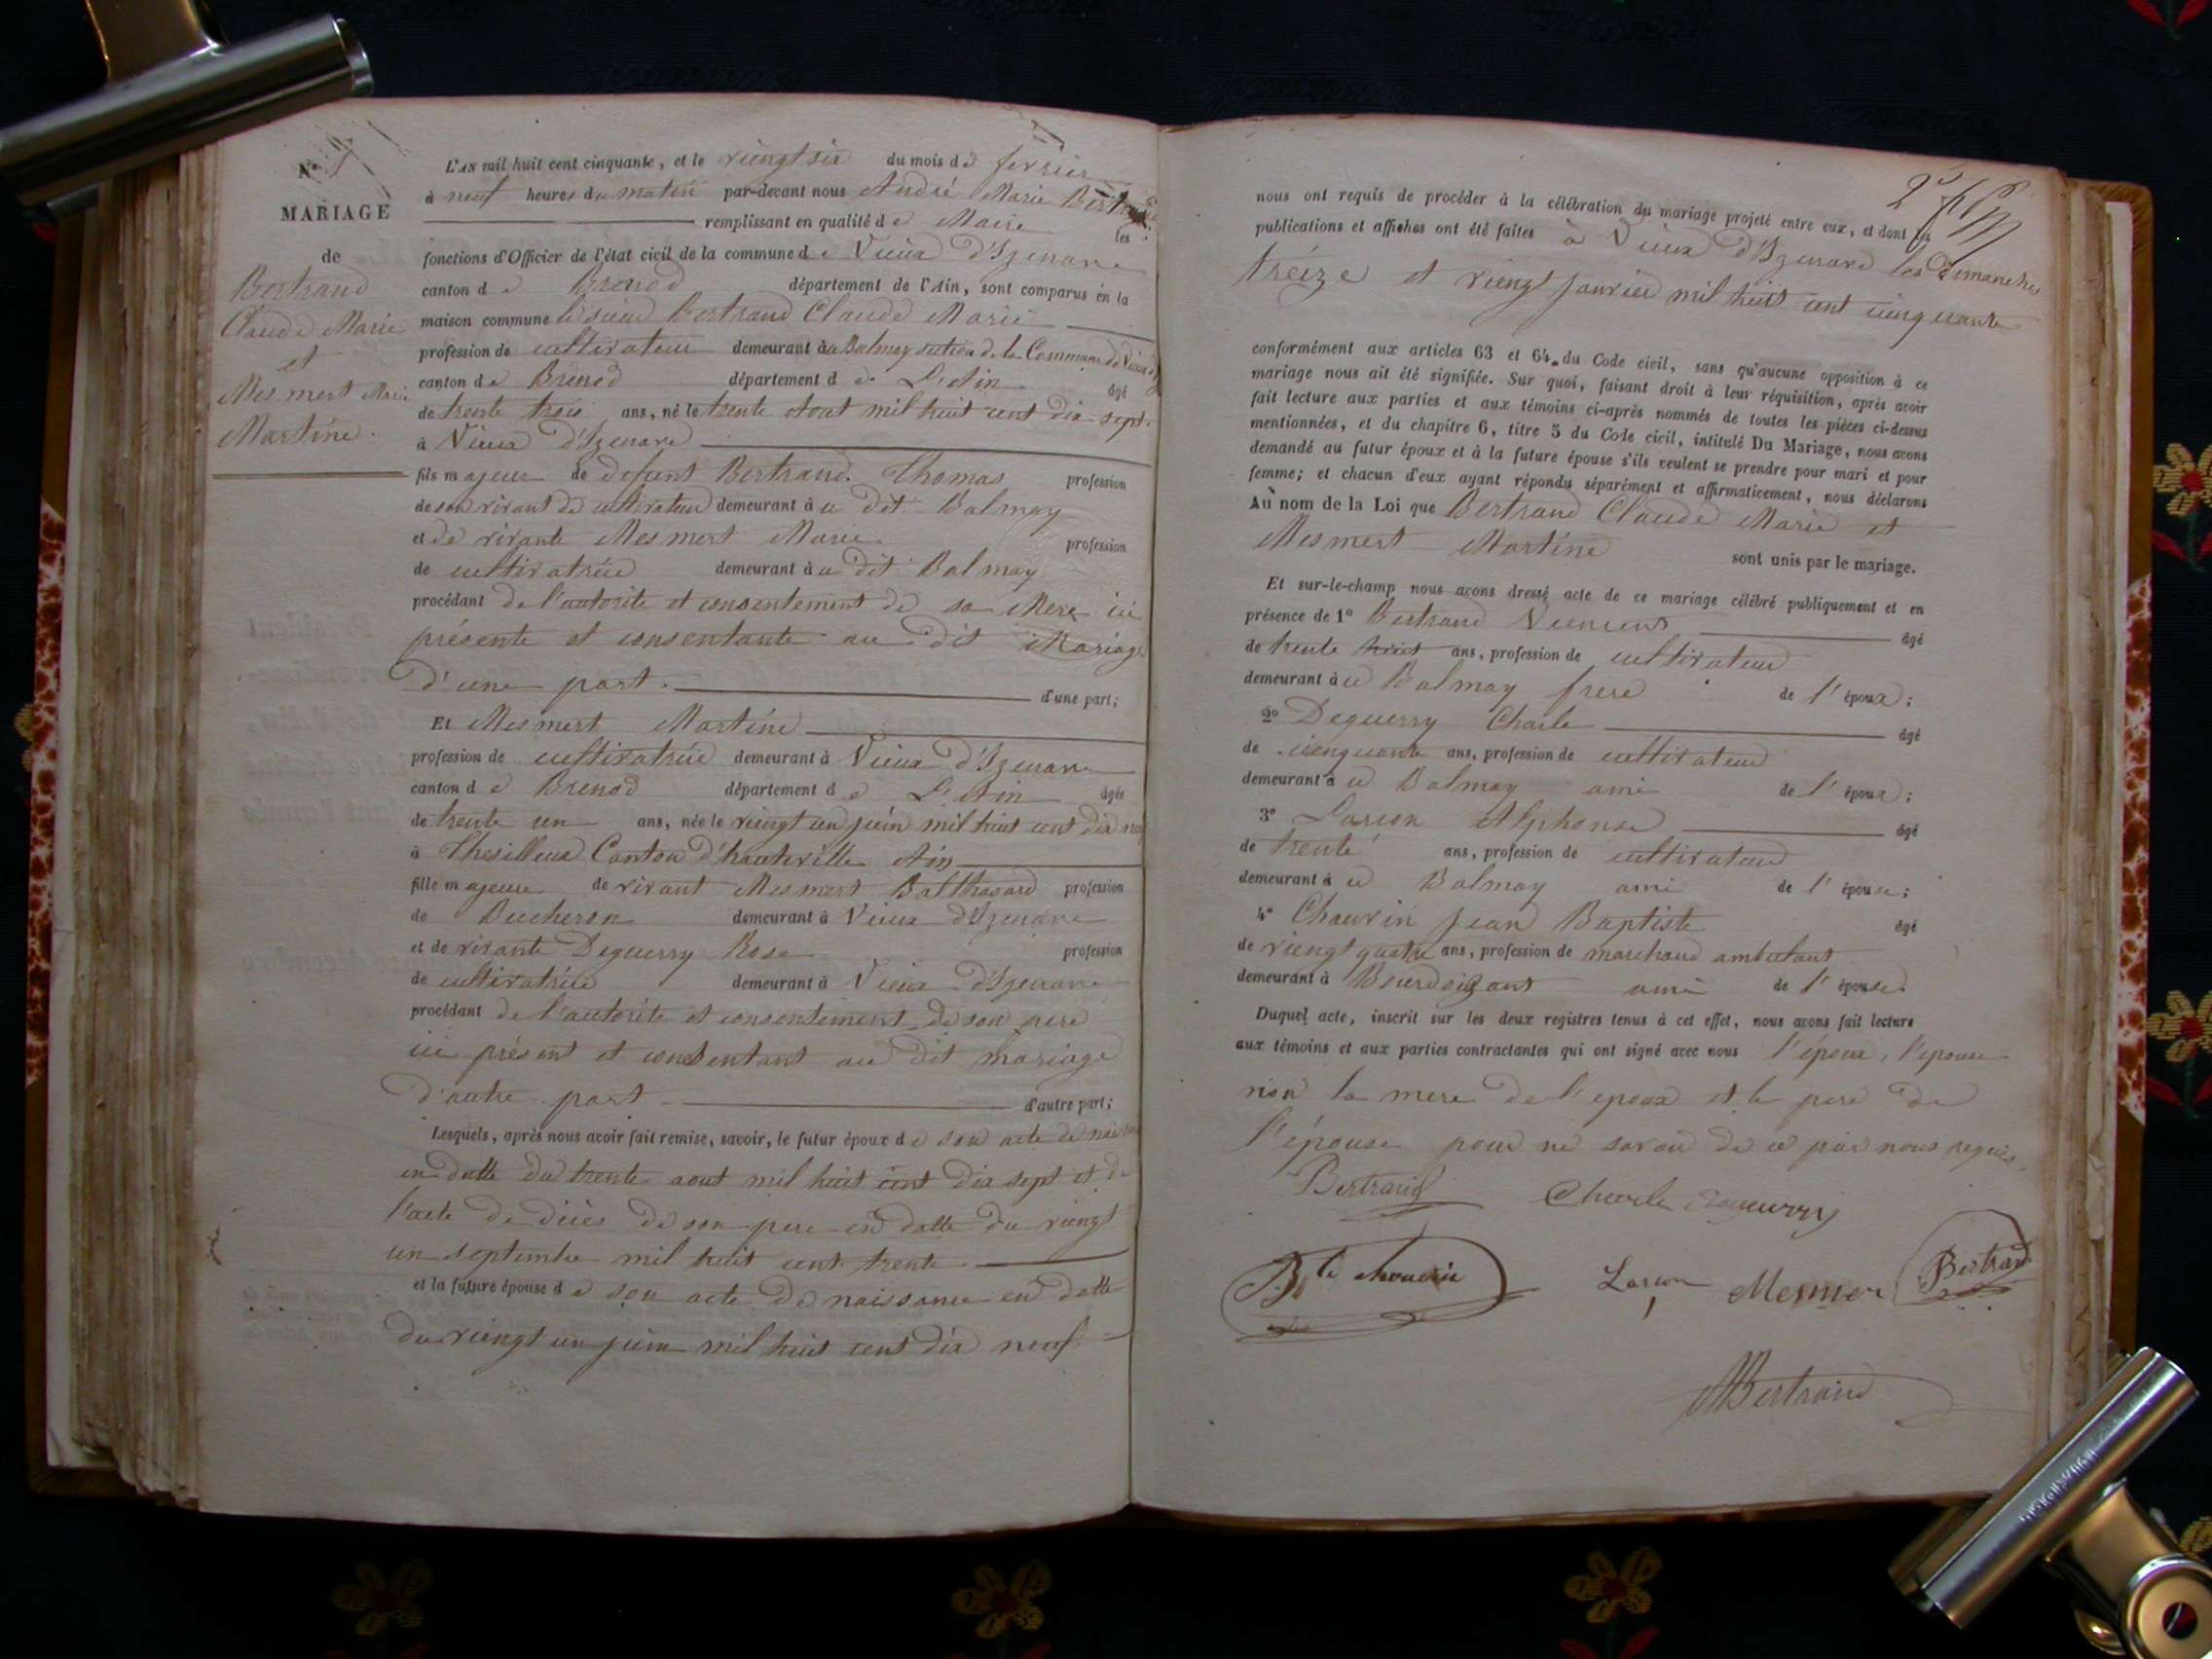 N° 9
MARIAGE
de
Bertrand
Claude Marie
et
Mesmert Marie
Martine.
L'AN mil huit cent cinquante, et le viengt six du mois de fevrier
à neuf heures du matin par-devant nous André Marie Bertrand
remplissant en qualité de Maire les
fonctions d'Officier de l'état civil de la commune de Vieux d'Izenave
canton de Brenod département de l'Ain, sont comparus en la
maison commune le sieur Bertrand Claude Marie
profession de cultivateur demeurant à u Balmay section de la Commune de Vieux d'Iz
canton de Brenod département de L'Ain âgé
de trente trois ans, né le trente Aout mil huit cent dix-sept.
à Vieux d'Izenave
fils majeur de defunt Bertrand Thomas profession
de son vivant de cultivateur demeurant à u dit Balmay
et de vivante Mesmert Marie profession
de cultivatrice demeurant à u dit Balmay
procédant de l'autorite et consentement de sa Mere ici
présente et consentante au dit Mariage
d'une part. d'une part;
Et Mesmert Martine
profession de cultivatrice demeurant à Vieux d'Izenave
canton de Brenod département de L'Ain âgée
de trente un ans, née le viengt un juin mil huit cent dix neuf
à Thesilleux Canton d'hauteville Ain
fille majeure de vivant Mesmert Balthasard profession
de Bucheron demeurant à Vieux d'Izenave
et de vivante Deguerry Rose profession
de cultivatrice demeurant à Vieux d'Izenave
procédant de l'autorite et consentement de son pere
ici présent et consentant au dit mariage
d'autre part d'autre part;
Lesquels, après nous avoir fait remise, savoir, le futur époux de son acte de naissance
en datte du trente aout mil huit cent dix sept et de
l'acte de décès de son pere en datte du viengt
un septembre mil huit cent trente
et la future épouse de son acte de naissance en datte
du viengt un juin mil huit cent dix neuf
nous ont requis de procéder à la célébration du mariage projeté entre eux, et dont les
publications et affiches ont été faites à Vieux d'Izenave les dimanches
treize et viengt janvier mil huit cent cinquante
conformément aux articles 63 et 64 du Code civil, sans qu'aucune opposition à ce
mariage nous ait été signifiée. Sur quoi, faisant droit à leur réquisition, après avoir
fait lecture aux parties et aux témoins ci-après nommés de toutes les pièces ci-dessus
mentionnées, et du chapitre 6, titre 5 du Code civil, intitulé Du Mariage, nous avons
demandé au futur époux et à la future épouse s'ils veulent se prendre pour mari et pour
femme; et chacun d'eux ayant répondu séparément et affirmativement, nous déclarons
Au nom de la Loi que Bertrand Claude Marie et
Mesmert Martine sont unis par le mariage.
Et sur-le-champ nous avons dressé acte de ce mariage célébré publiquement et en
présence de 1° Bertrand âgé
de trente huit ans, profession de cultivateur
demeurant à u Balmay frere de l'époux;
2° Deguerry Charle âgé
de cienquante ans, profession de cultivateur
demeurant à u Balmay ami de l'époux;
3° Larcon Alphonse âgé
de trente ans, profession de cultivateur
demeurant à u Balmay ami de l'épouse;
4° Chauvin Jean Baptiste âgé
de viengt quatre ans, profession de marchand ambulant
demeurant à ami de l'épouse.
Duquel acte, inscrit sur les deux registres tenus à cet effet, nous avons fait lecture
aux témoins et aux parties contractantes qui ont signé avec nous l'époux, l'épouse
non la mere de l'epoux et le pere de
l'épouse pour ne savoir de ce par nous requis.
Bertrand Charle Deguerry
Larcon Mesmer Bertrand
Bertrand